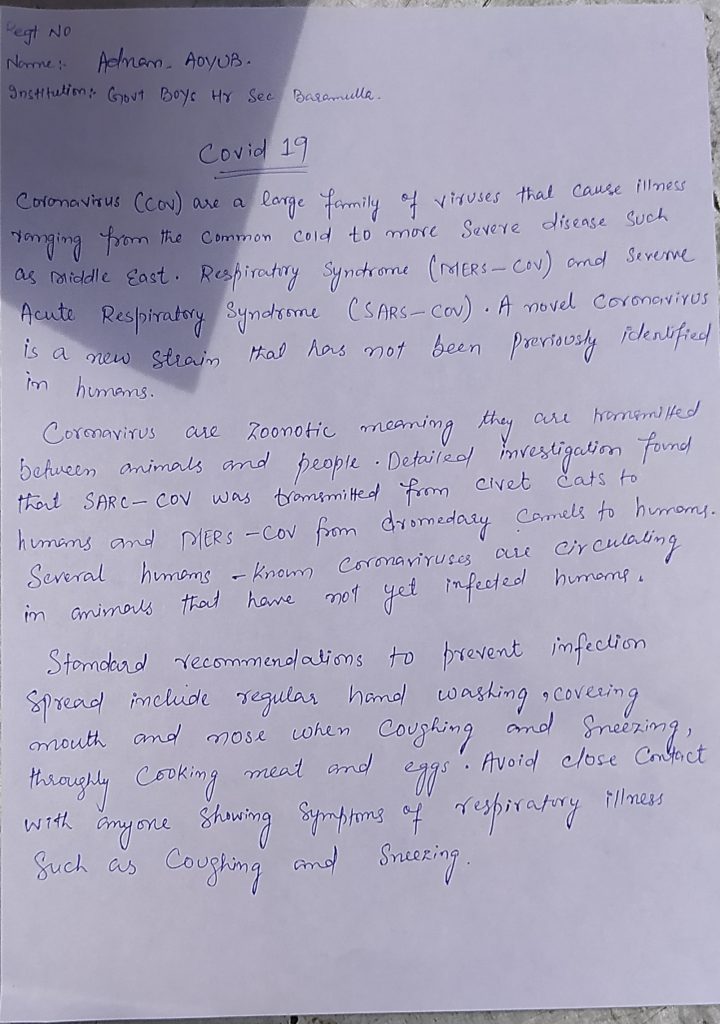 Regt No
Name :- Adnan. AOYUB.
Institution :- Govt Boys Hr Sec Baramulla.
Covid 19
Coronavirus (COV) are a large family of viruses that cause illness
ranging from the common cold to more severe disease such
as Middle East. Respiratory Syndrome (MERS-COV) and Severve
Acute Respiratory Syndrome (SARS-COV). A novel coronavirus
is a new strain that has not been previously identified
in humans.
Coronavirus are zoonotic meaning they are transmitted
between animals and people. Detailed investigation found
that SARC-COV was transmitted from civet cats to
humans and MERS-COV from dromedary camels to humans.
Several humans - known coronaviruses are circulating
in animals that have not yet infected humans.
Standard recommendations to prevent infection
spread include regular hand washing, covering
mouth and nose when coughing and sneezing,
throughly cooking meat and eggs. Avoid close contact
with anyone showing symptoms of respiratory illness
such as coughing and sneezing.